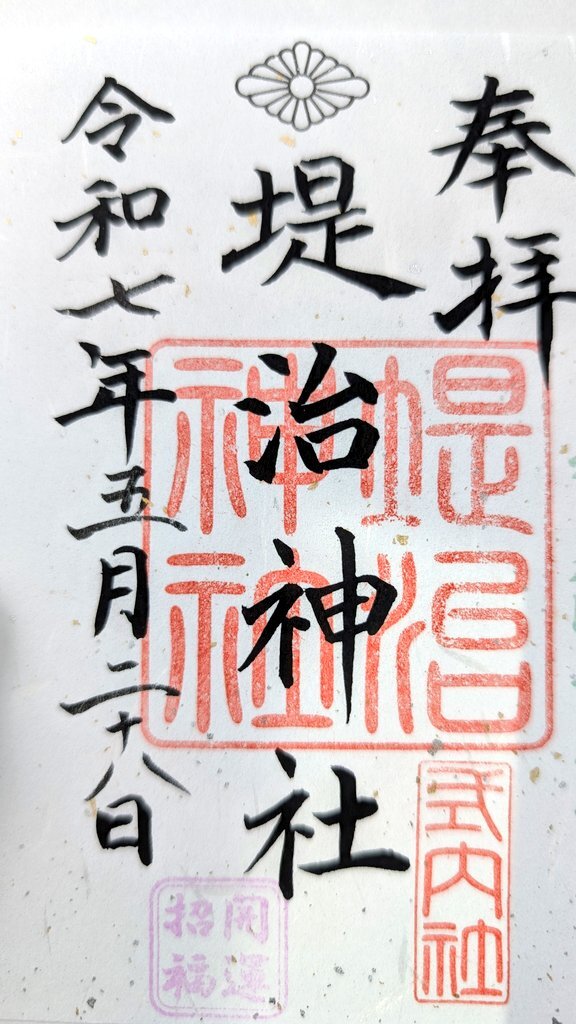 奉拝
堤治神社
令和七年五月二十八日
堤治神社
式内社
開運
招福